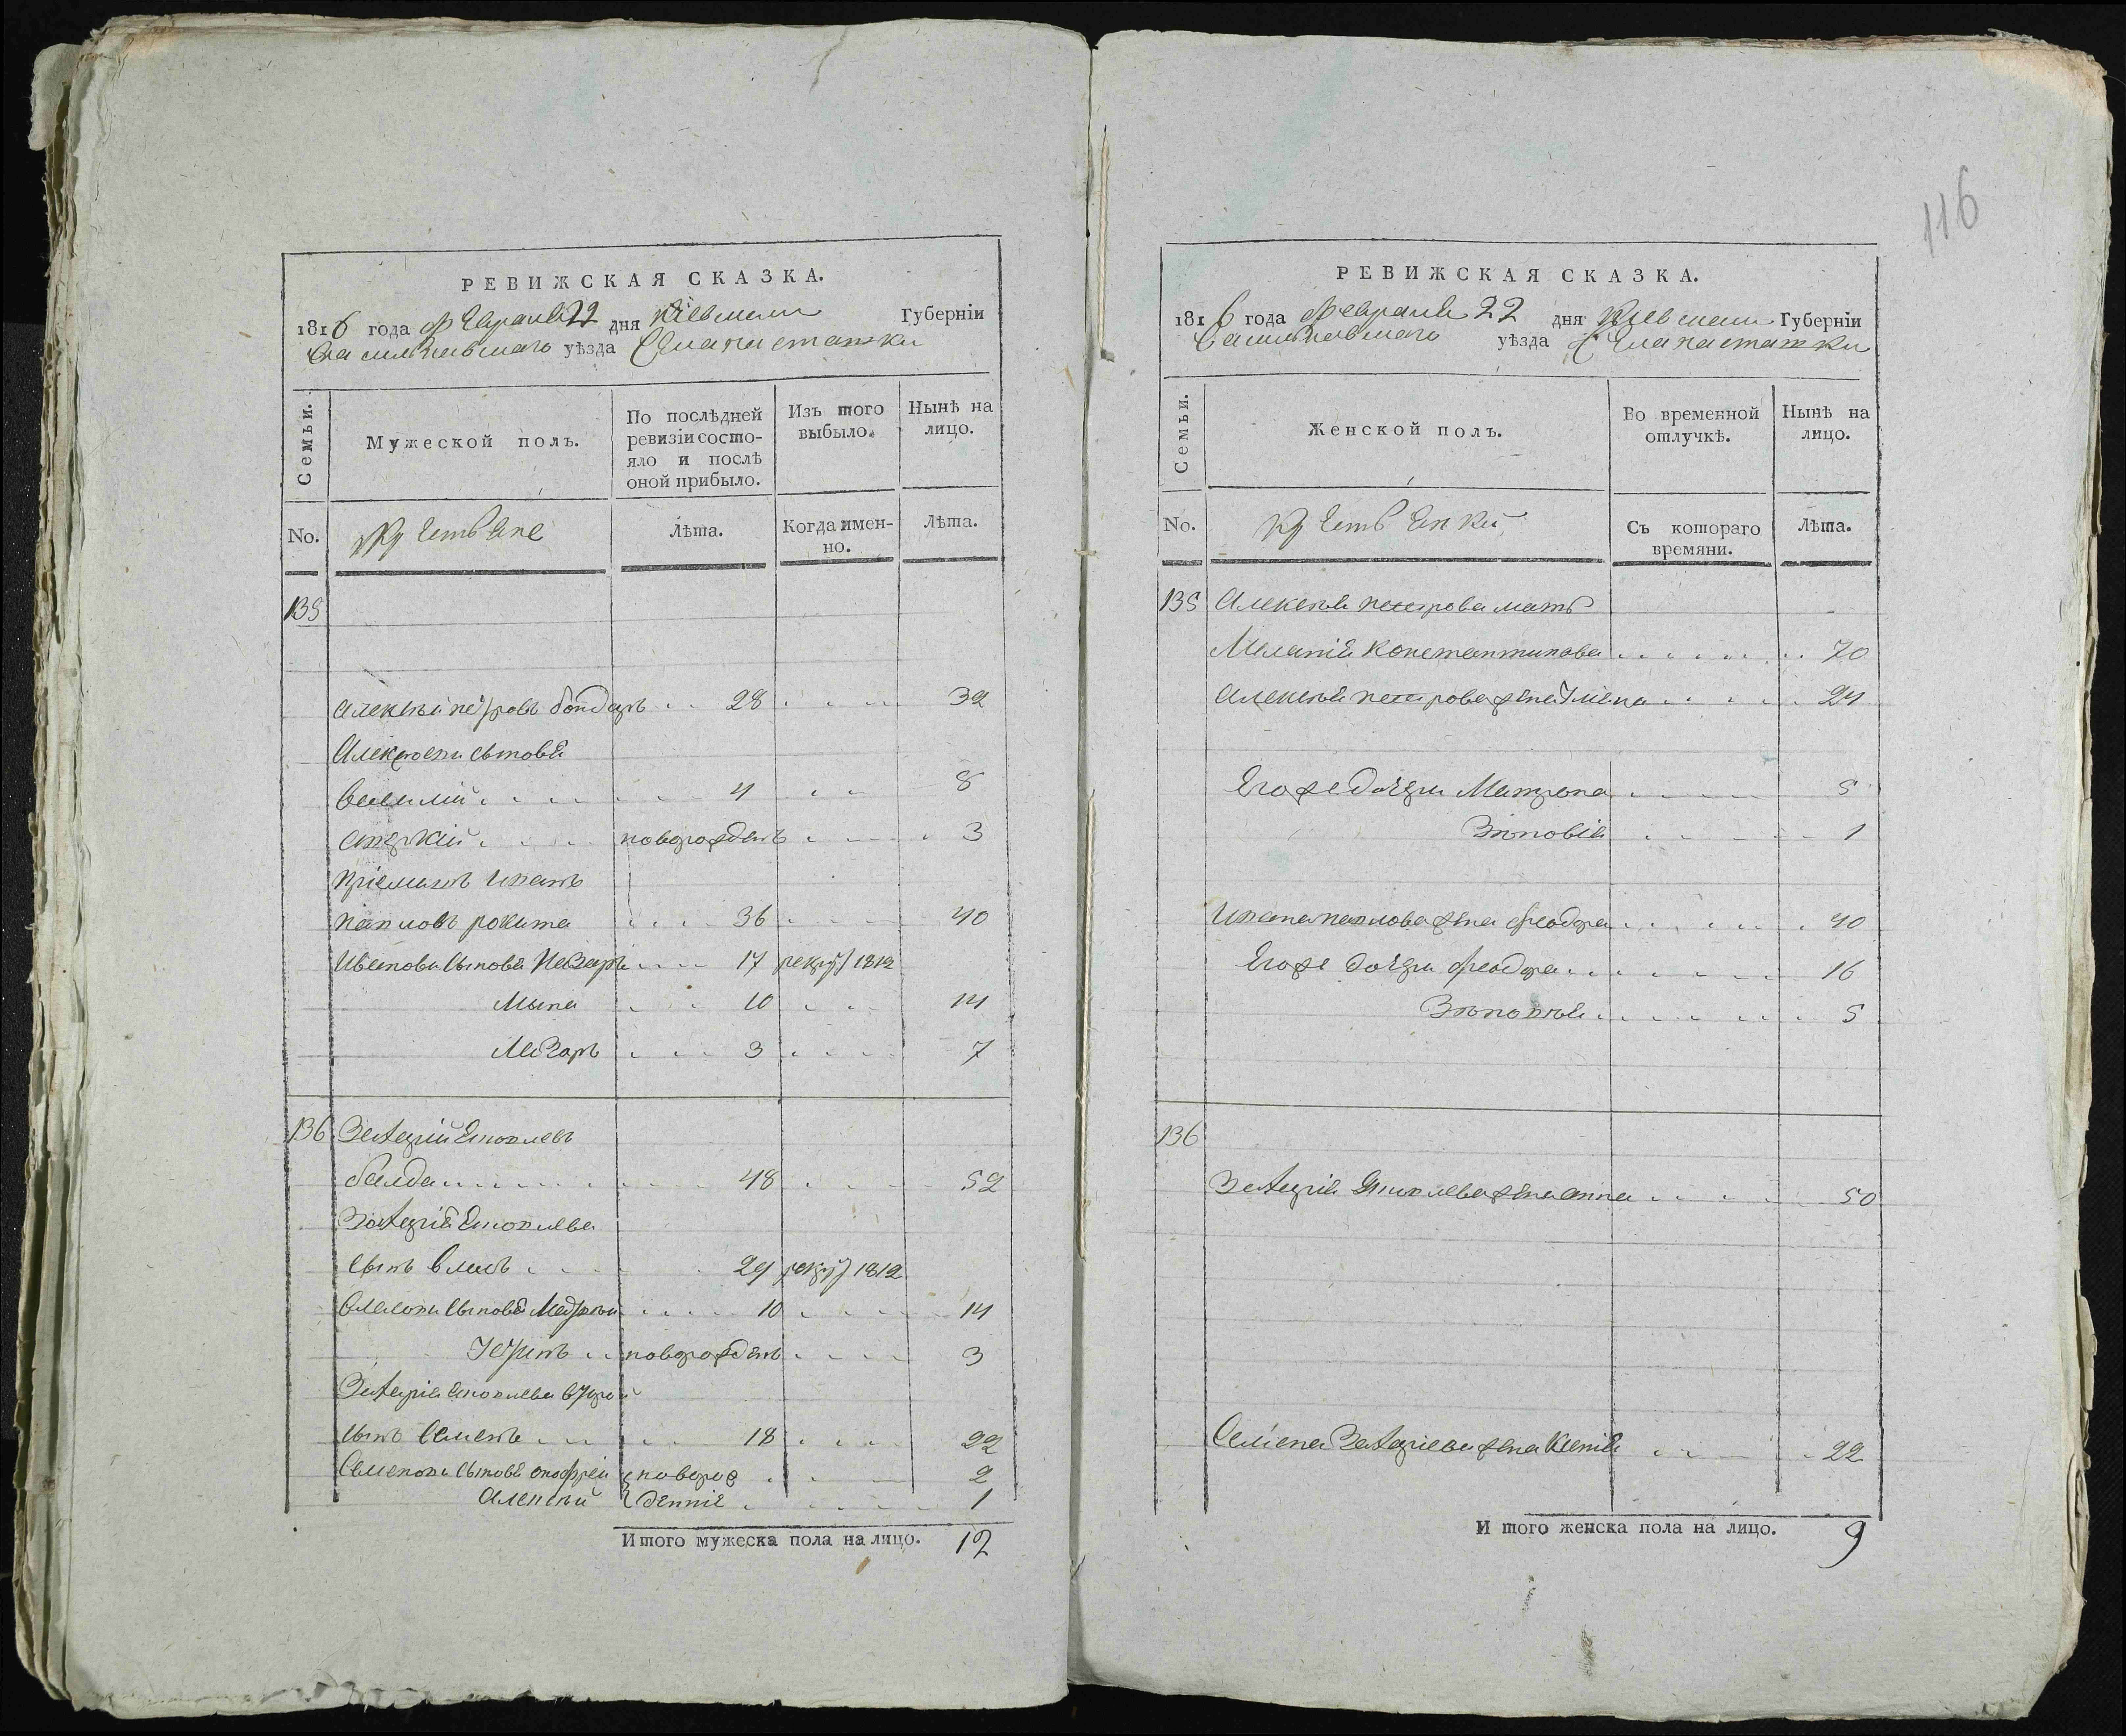 РЕВИЖСКАЯ СКАЗКА.
1816 года Февраля 22 дня Кіевской Губерніи
Васильковского уѣзда Села
Семьи.
Мужеской полъ.
По послѣдней ревизіи состо-
яло и послѣ
оной прибыло.
Изъ того
выбыло.
Нынѣ на
лицо.
No.
Крестьяне
Лѣта.
Когда имен-
но.
Лѣта.
135
Алексѣй Петровъ бондарь 28 32
Алексѣевы сыновья
Василій 4 8
новорожденъ 3
Пріемышъ Иванъ
Павловъ рокита 36 40
Ивановы сыновья Назаръ 17 рекрут 1812
10 14
Лазарь 3 7
136 Захарій Яковлевъ
балда 48 52
Захарія Яковлева
сынъ Власъ 29 рекрут 1812
сыновья 10 14
новорожденъ 3
Захарія Яковлева второй
сынъ Семенъ 18 22
Семеновы сыновья Онофрей новорож 2
Алексѣй денніе 1
Итого мужеска пола на лицо. 12
116
РЕВИЖСКАЯ СКАЗКА.
1816 года Февраля 22 дня Кіевской Губерніи
Васильковского уѣзда Села
Семьи.
Женской полъ.
Во временной
отлучкѣ.
Нынѣ на
лицо.
No.
Крестьянки
Съ котораго
времяни.
Лѣта.
135 Алексѣя Петрова мать
Меланія Константинова 70
Алексѣя Петрова жена 24
Егоже дочери Матрона 5
Зѣновія 1
Ивана Павлова жена Феодора 40
Егоже дочери Феодора 16
Зѣновія 5
136
Захарія Яковлева жена Анна 50
Семена Захаріева жена Ксенія 22
Итого женска пола на лицо. 9